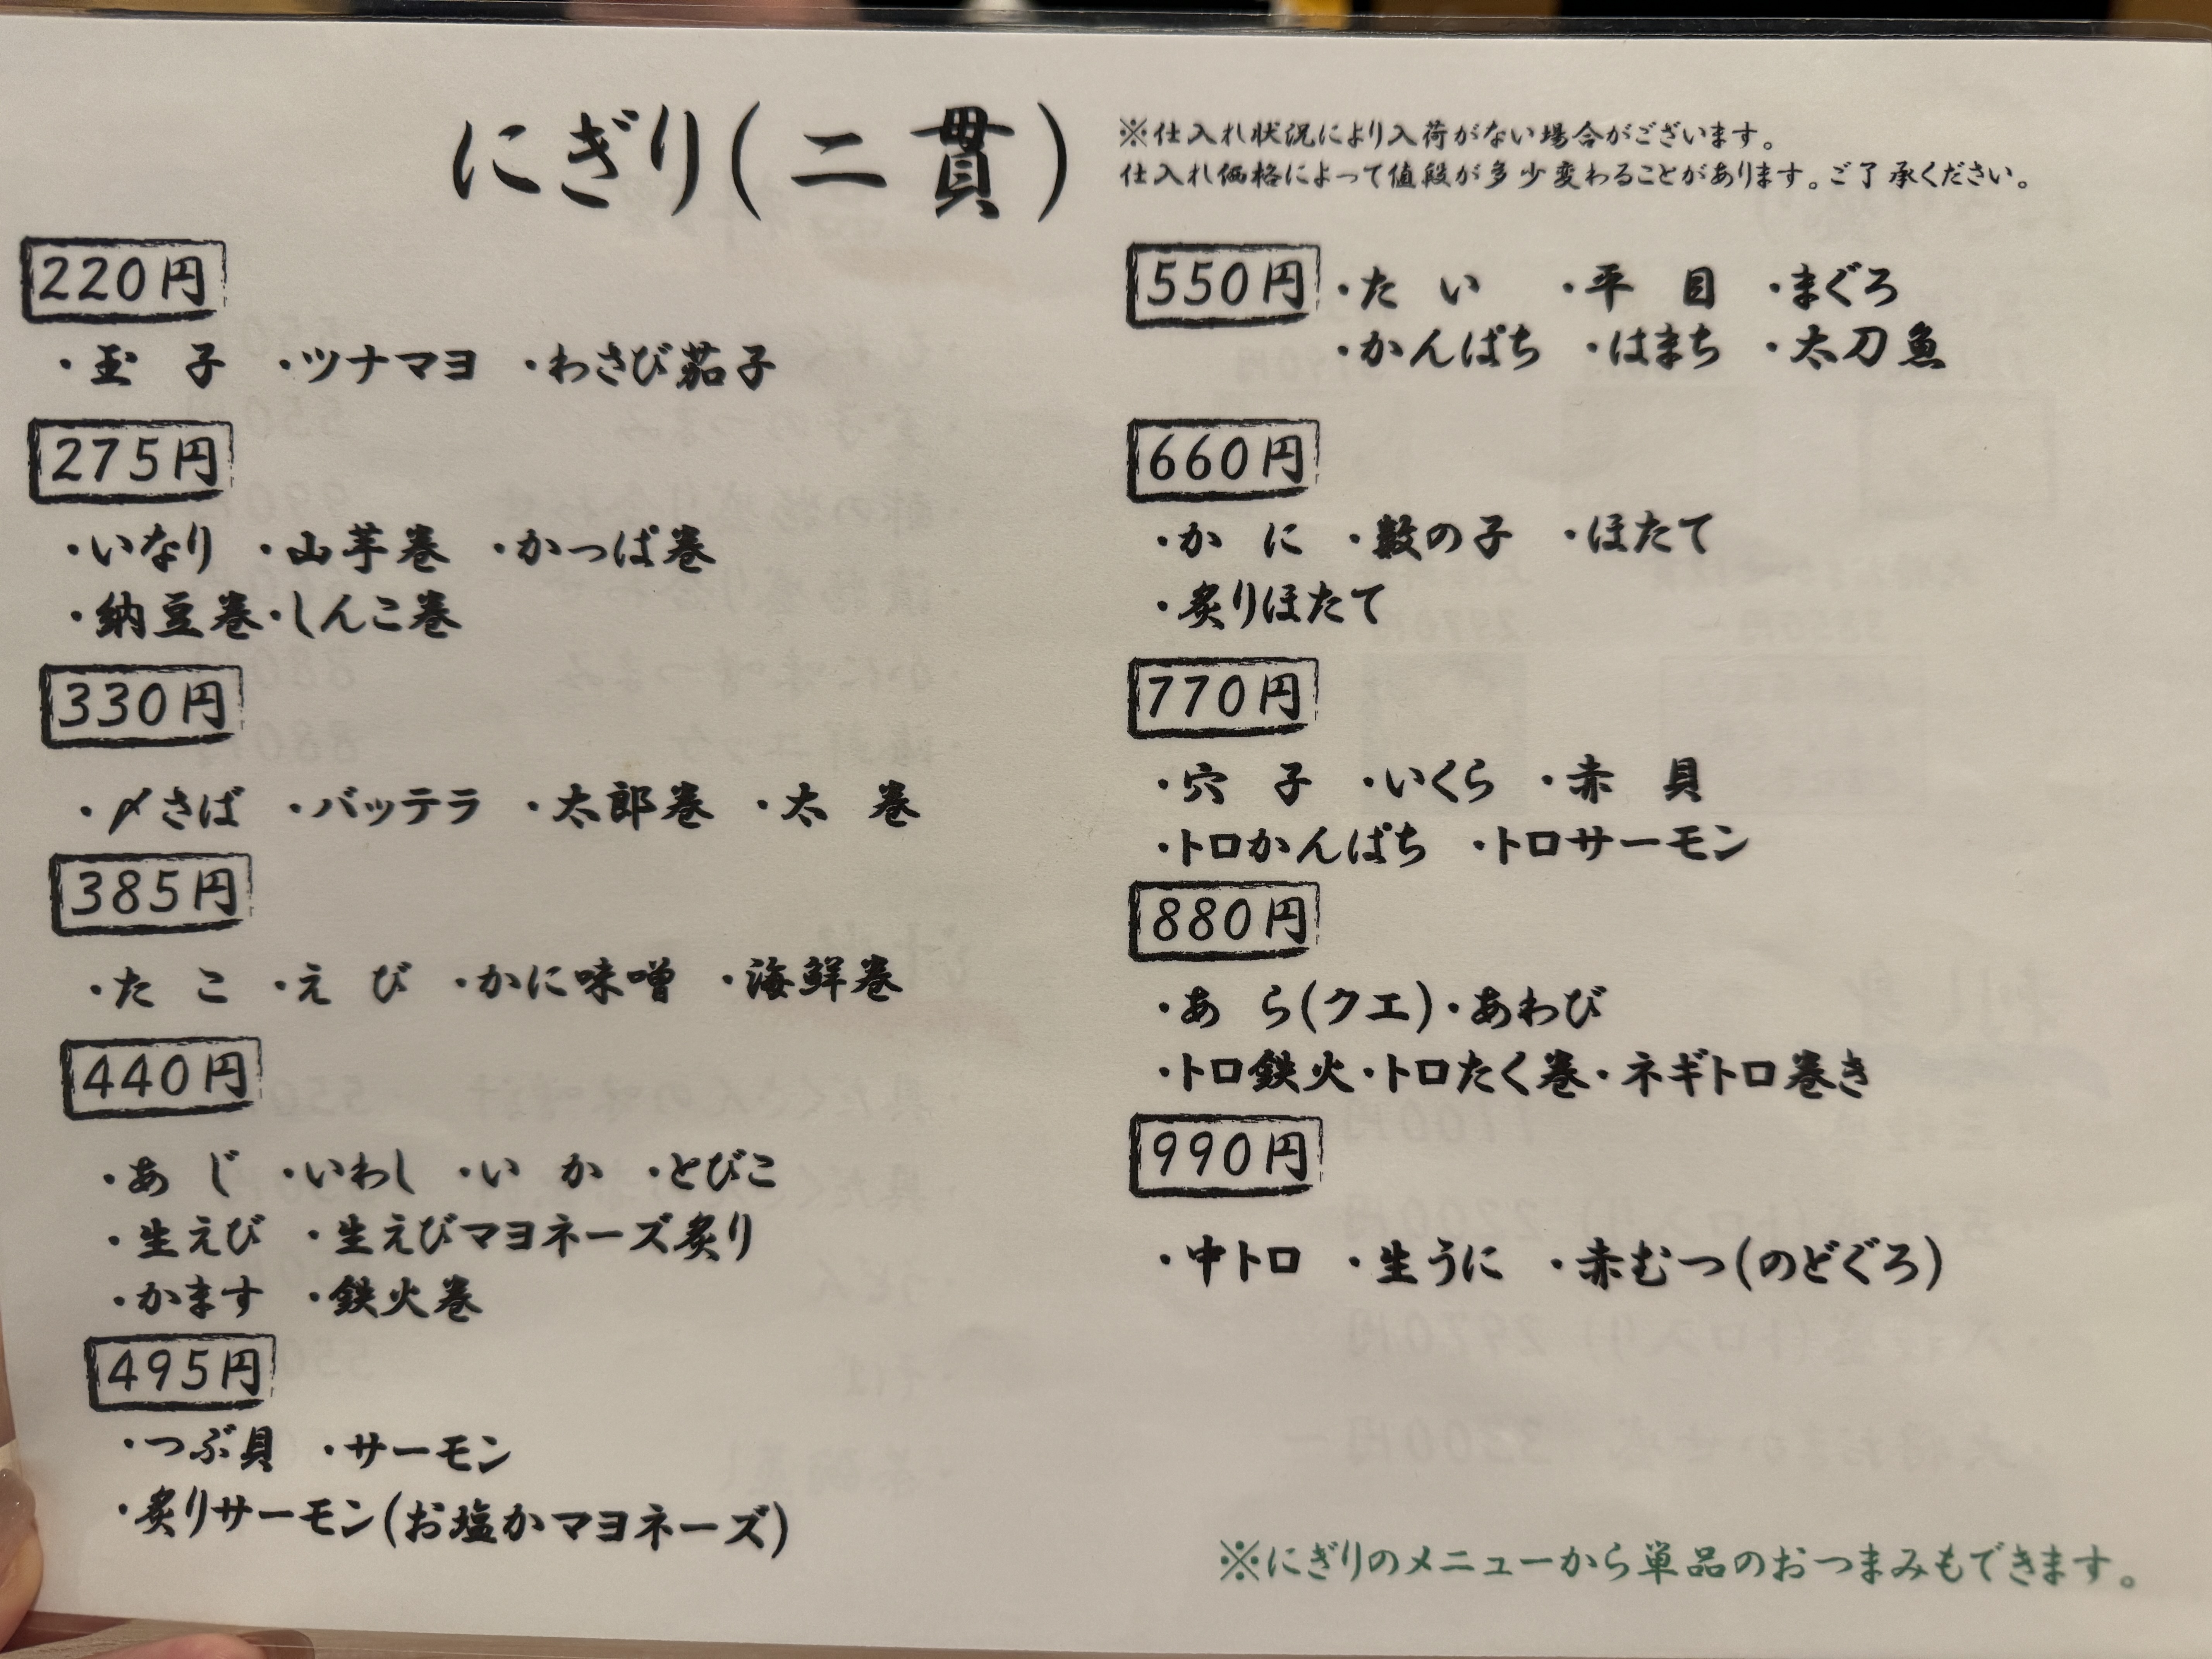 にぎり(二貫)
※仕入れ状況により入荷がない場合がございます。
仕入れ価格によって値段が多少変わることがあります。ご了承ください。
220円
・玉 子 ・ツナマヨ ・わさび茄子
275円
・いなり ・山芋巻 ・かっぱ巻
・納豆巻・しんこ巻
330円
・〆さば ・バッテラ ・太郎巻 ・太 巻
385円
・た こ ・え び ・かに味噌 ・海鮮巻
440円
・あ じ ・いわし ・い か ・とびこ
・生えび ・生えびマヨネーズ炙り
・かます ・鉄火巻
495円
・つぶ貝 ・サーモン
・炙りサーモン(お塩かマヨネーズ)
550円 ・た い ・平 目 ・まぐろ
・かんぱち ・はまち ・太刀魚
660円
・か に ・数の子 ・ほたて
・炙りほたて
770円
・穴 子 ・いくら ・赤 貝
・トロかんぱち ・トロサーモン
880円
・あ ら(クエ)・あわび
・トロ鉄火・トロたく巻・ネギトロ巻き
990円
・中トロ ・生うに ・赤むつ(のどぐろ)
※にぎりのメニューから単品のおつまみもできます。